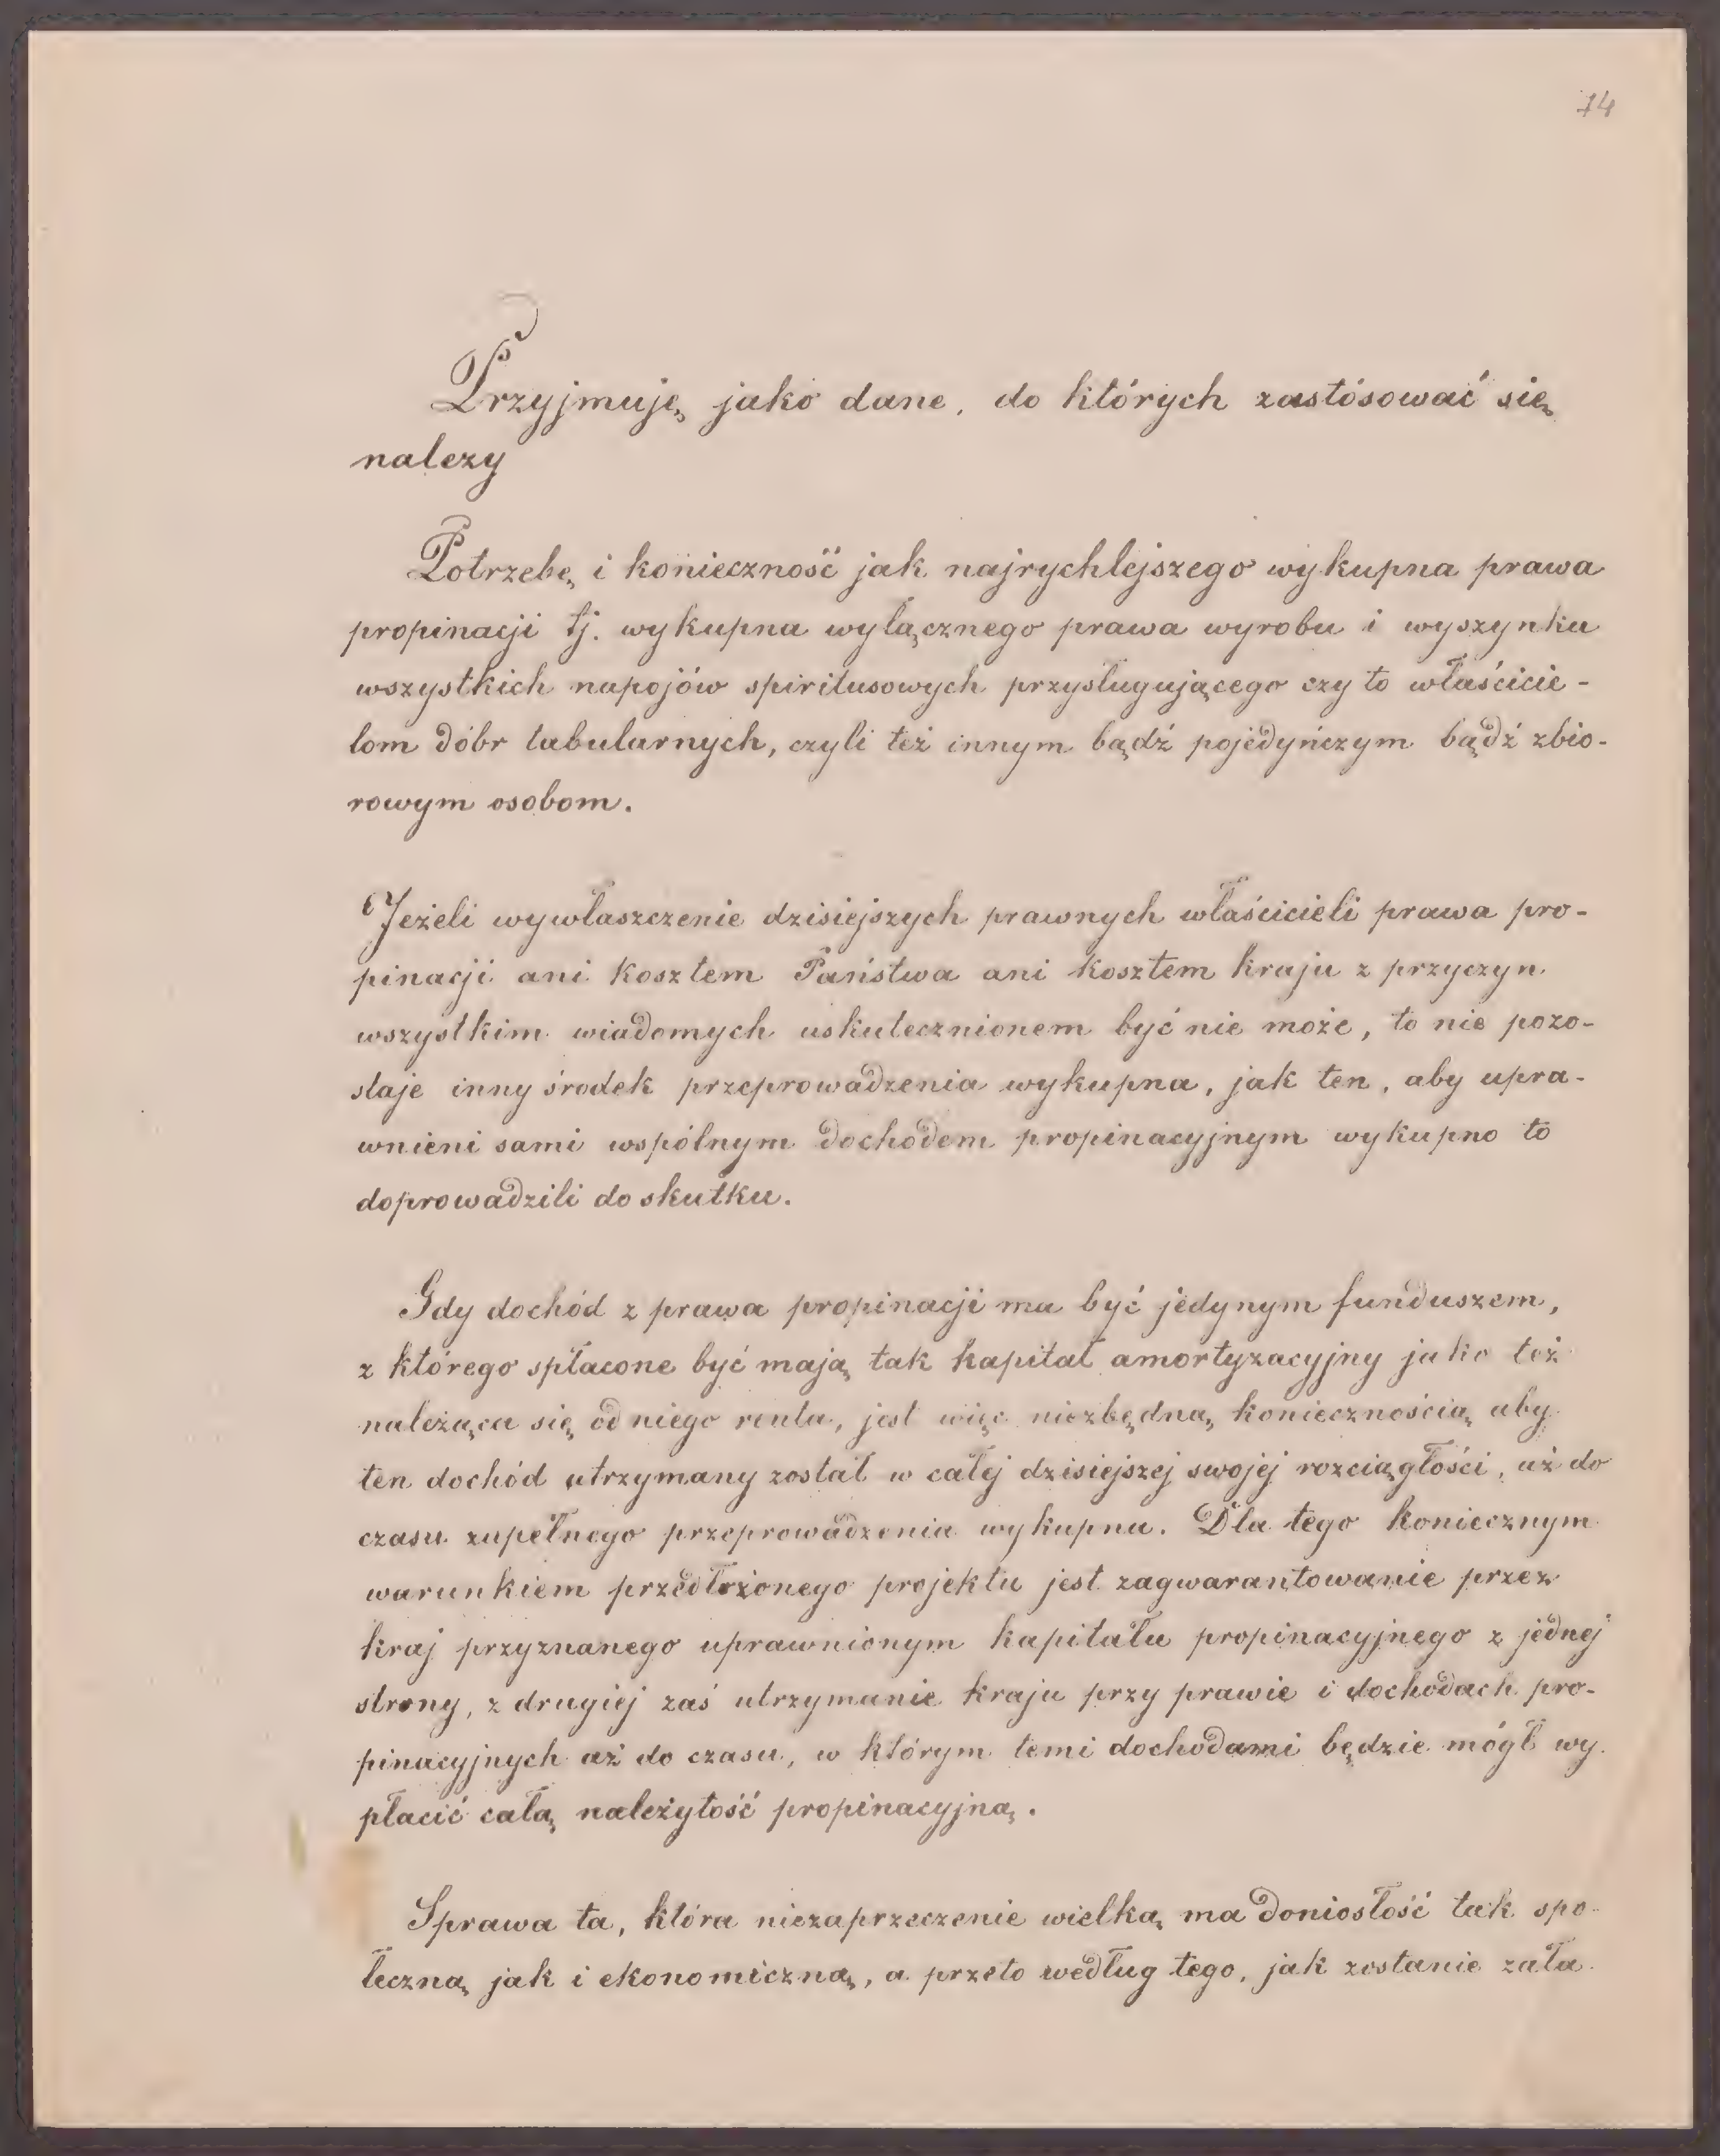 74
Przyjmuję jako dane, do których zastósować się
nalezy
Potrzebę i konieczność jak najrychlejszego wykupna prawa
propinacji tj. wykupna wyłącznego prawa wyrobu i wyszynku
wszystkich napojów spiritusowych przysługującego czy to właścicie-
lom dóbr tabularnych, czyli też innym bądź pojedyńczym bądź zbio-
rowym osobom.
Jeżeli wywłaszczenie dzisiejszych prawnych właścicieli prawa pro-
pinacji ani kosztem Państwa ani kosztem kraju z przyczyn
wszystkim wiadomych uskutecznionem być nie może, to nie pozo-
staje inny środek przeprowadzenia wykupna, jak ten, aby upra-
wnieni sami wspólnym dochodem propinacyjnym wykupno to
doprowadzili do skutku.
Gdy dochód z prawa propinacji ma być jedynym funduszem,
z którego spłacone być mają tak kapitał amortyzacyjny jako też
należąca się od niego renta, jest więc niezbędną koniecznością aby
ten dochód utrzymany został w całej dzisiejszej swojej rozciągłości, aż do
czasu zupełnego przeprowadzenia wykupna. Dla tego koniecznym
warunkiem przedłożonego projektu jest zagwarantowanie przez
kraj przyznanego uprawnionym kapitału propinacyjnego z jednej
strony, z drugiej zaś utrzymanie kraju przy prawie i dochodach pro-
pinacyjnych aż do czasu, w którym temi dochodami będzie mógł wy-
płacić całą należytość propinacyjną.
Sprawa ta, która niezaprzeczenie wielką ma doniosłość tak spo-
łeczną jak i ekonomiczną, a przeto według tego, jak zostanie zała-